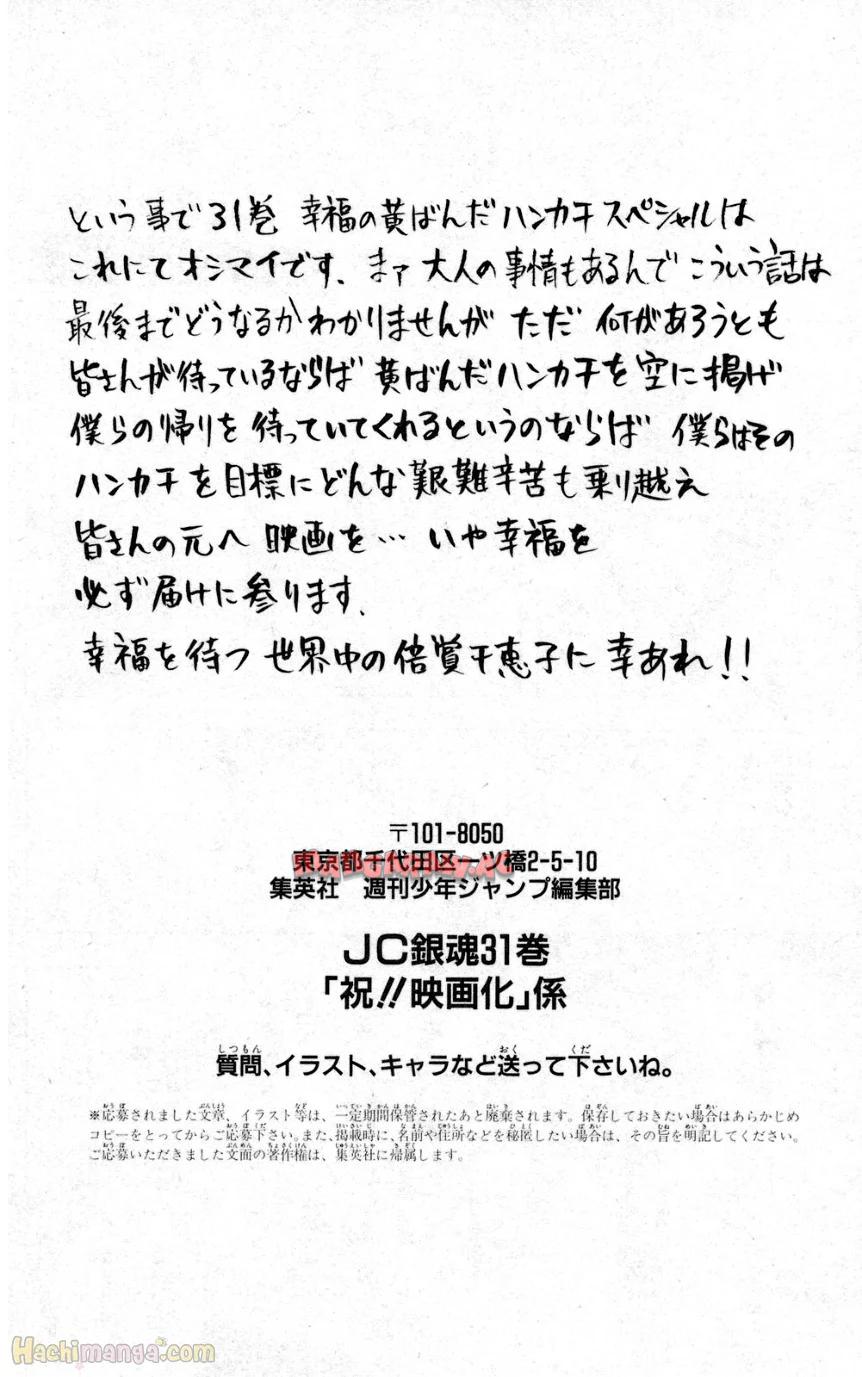 という事で31巻 幸福の黄ばんだハンカチスペシャルは
これにてオシマイです、まァ大人の事情もあるんでこういう話は
最後までどうなるかわかりませんが ただ 何があろうとも
皆さんが待っているならば 黄ばんだハンカチを空に掲げ
僕らの帰りを待っていてくれるというのならば 僕らはその
ハンカチを目標にどんな艱難辛苦も乗り越え
皆さんの元へ 映画を… いや幸福を
必ず届けに参ります、
幸福を待つ 世界中の倍賞千恵子に幸あれ!!
〒101-8050
東京都千代田区一ツ橋2-5-10
集英社 週刊少年ジャンプ編集部
JC銀魂31巻
「祝!!映画化」係
質問、イラスト、キャラなど送って下さいね。
※応募されました文章、イラスト等は、一定期間保管されたあと廃棄されます。保存しておきたい場合はあらかじめ
コピーをとってからご応募下さい。また、掲載時に、名前や住所などを秘匿したい場合は、その旨を明記してください。
ご応募いただきました文面の著作権は、集英社に帰属します。
Hachimanga.com